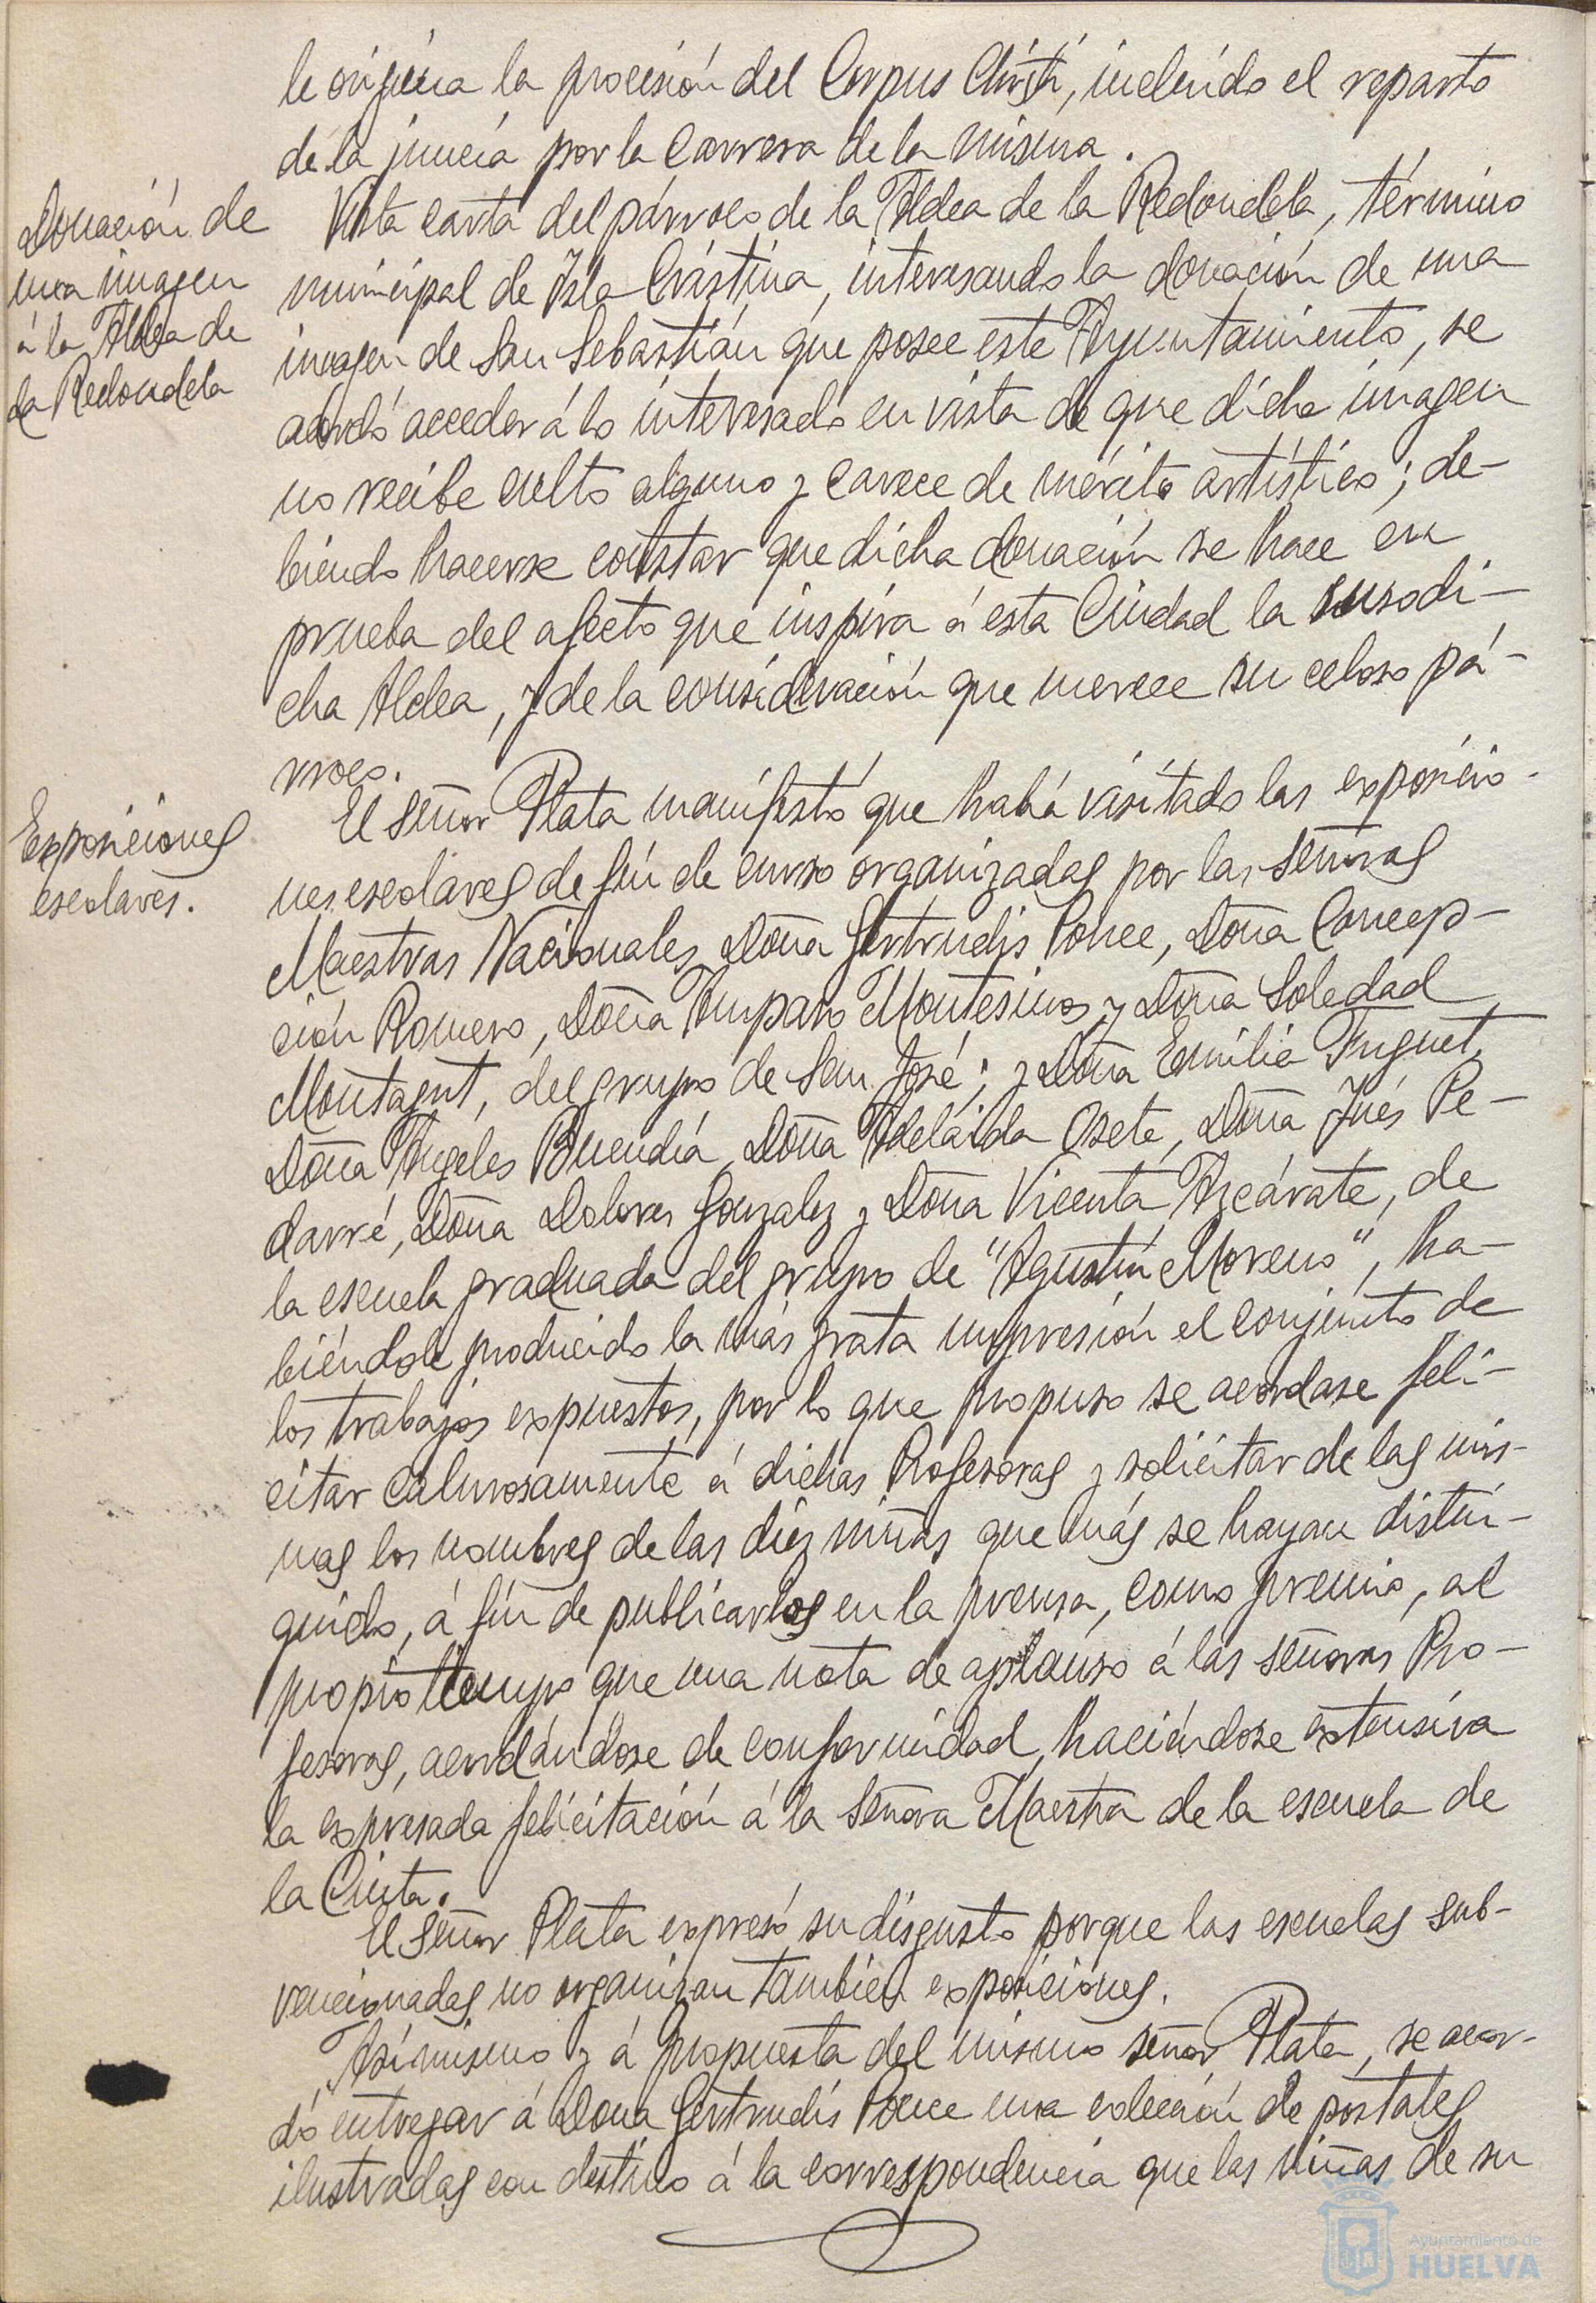 le origina la procesión del Corpus Christi, incluido el reparto
de la juncia por la carrera de la misma.
Donación de
una imagen
á la Aldea de
la Redondela
Vista carta del párroco de la Aldea de la Redondela, término
municipal de Isla Cristina, interesando la donación de una
imagen de San Sebastián que posee este Ayuntamiento, se
acordó acceder á lo interesado en vista de que dicha imágen
no recibe culto alguno y carece de mérito artístico; de-
biendo hacerse constar que dicha donación se hace en
prueba del afecto que inspira á esta Ciudad la susodi-
cha Aldea, y de la consideración que merece su celoso pá-
rroco.
Exposiciones
escolares.
El Señor Plata manifestó que había visitado las exposicio-
nes escolares de fin de curso organizadas por las Señoras
Maestras Nacionales Doña Gertrudis Ponce, Doña Concep-
ción Romero, Doña Amparo Montesinos y Doña Soledad
Montagut, del grupo de San José; y Doña Emilia Fuguet,
Doña Angeles Buendía, Doña Adelaida Osete, Doña Inés Pe-
darré, Doña Dolores Gonzalez y Doña Vicenta Azcárate, de
la escuela graduada del grupo de "Agustín Moreno", ha-
biéndole producido la más grata impresión el conjunto de
los trabajos expuestos, por lo que propuso se acordase feli-
citar calurosamente á dichas Profesoras y solicitar de las mis-
mas los nombres de las diez niñas que más se hayan distin-
guido, á fin de publicarlos en la prensa, como premio, al
propio tiempo que una nota de aplauso á las señoras Pro-
fesoras, acordándose de conformidad, haciéndose extensiva
la expresada felicitación á la Señora Maestra de la escuela de
la Cinta.
El Señor Plata expresó su disgusto porque las escuelas sub-
vencionadas no organizan tambien exposiciones.
Asimismo y á propuesta del mismo señor Plata, se acor-
dó entregar á Doña Gertrudis Ponce una colección de postales
ilustradas con destino á la correspondencia que las niñas de su
Ayuntamiento de
HUELVA